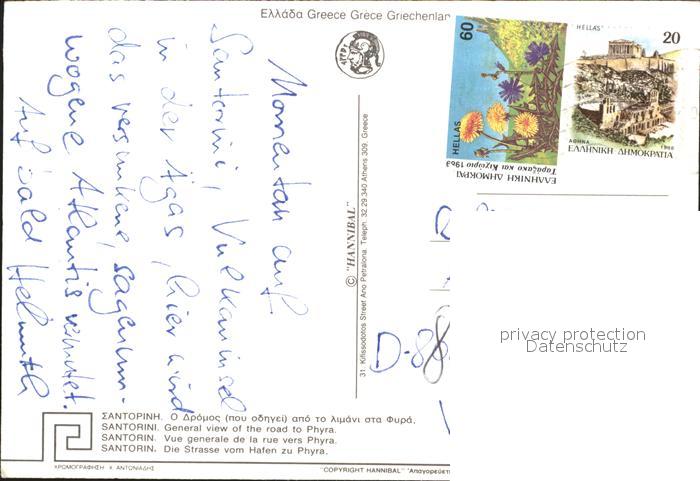 Ελλάδα Greece Grece Griechenlan
Momentan auf
Santorini, Vulkaninsel
in der Ägäis, hier wird
das versunkene, sagenum-
wogene Atlantis vermutet.
Auf bald Helmuth
© "HANNIBAL"
31. Kifissodotos Street Ano Petralona, Teleph. 32.29.340 Athens 309, Greece
60
HELLAS
ΕΛΛΗΝΙΚΗ ΔΗΜΟΚΡΑΤ
Ταράξακο και Κιχώριο 1989
HELLAS
20
ΑΘΗΝΑ 1988
ΕΛΛΗΝΙΚΗ ΔΗΜΟΚΡΑΤΙΑ
D-88
privacy protection
Datenschutz
ΣΑΝΤΟΡΙΝΗ. Ο Δρόμος (που οδηγεί) από το λιμάνι στα Φυρά.
SANTORINI. General view of the road to Phyra.
SANTORIN. Vue generale de la rue vers Phyra.
SANTORIN. Die Strasse vom Hafen zu Phyra.
ΧΡΩΜΟΓΡΑΦΗΣΗ Χ. ΑΝΤΩΝΙΑΔΗΣ
"COPYRIGHT HANNIBAL" Απαγορεύετ